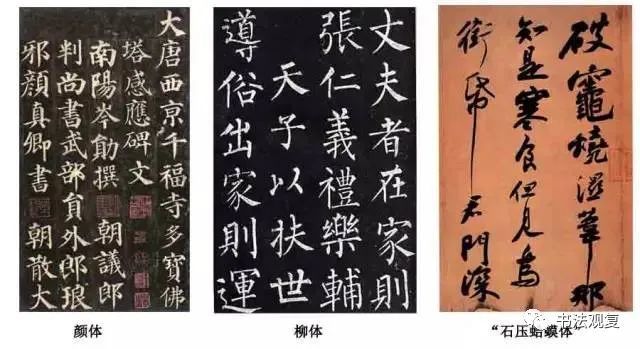 大唐西京千福寺多寶佛
塔感應碑文
南陽岑勛撰 朝議郎
判尚書武部員外郎琅
邪顏真卿書 朝散大
颜体
丈夫者在家則
張仁義禮樂輔
天子以扶世
導俗出家則運
柳体
破竈燒濕葦那
知是寒食但見烏
銜帋 君門深
“石压蛤蟆体”
书法观复